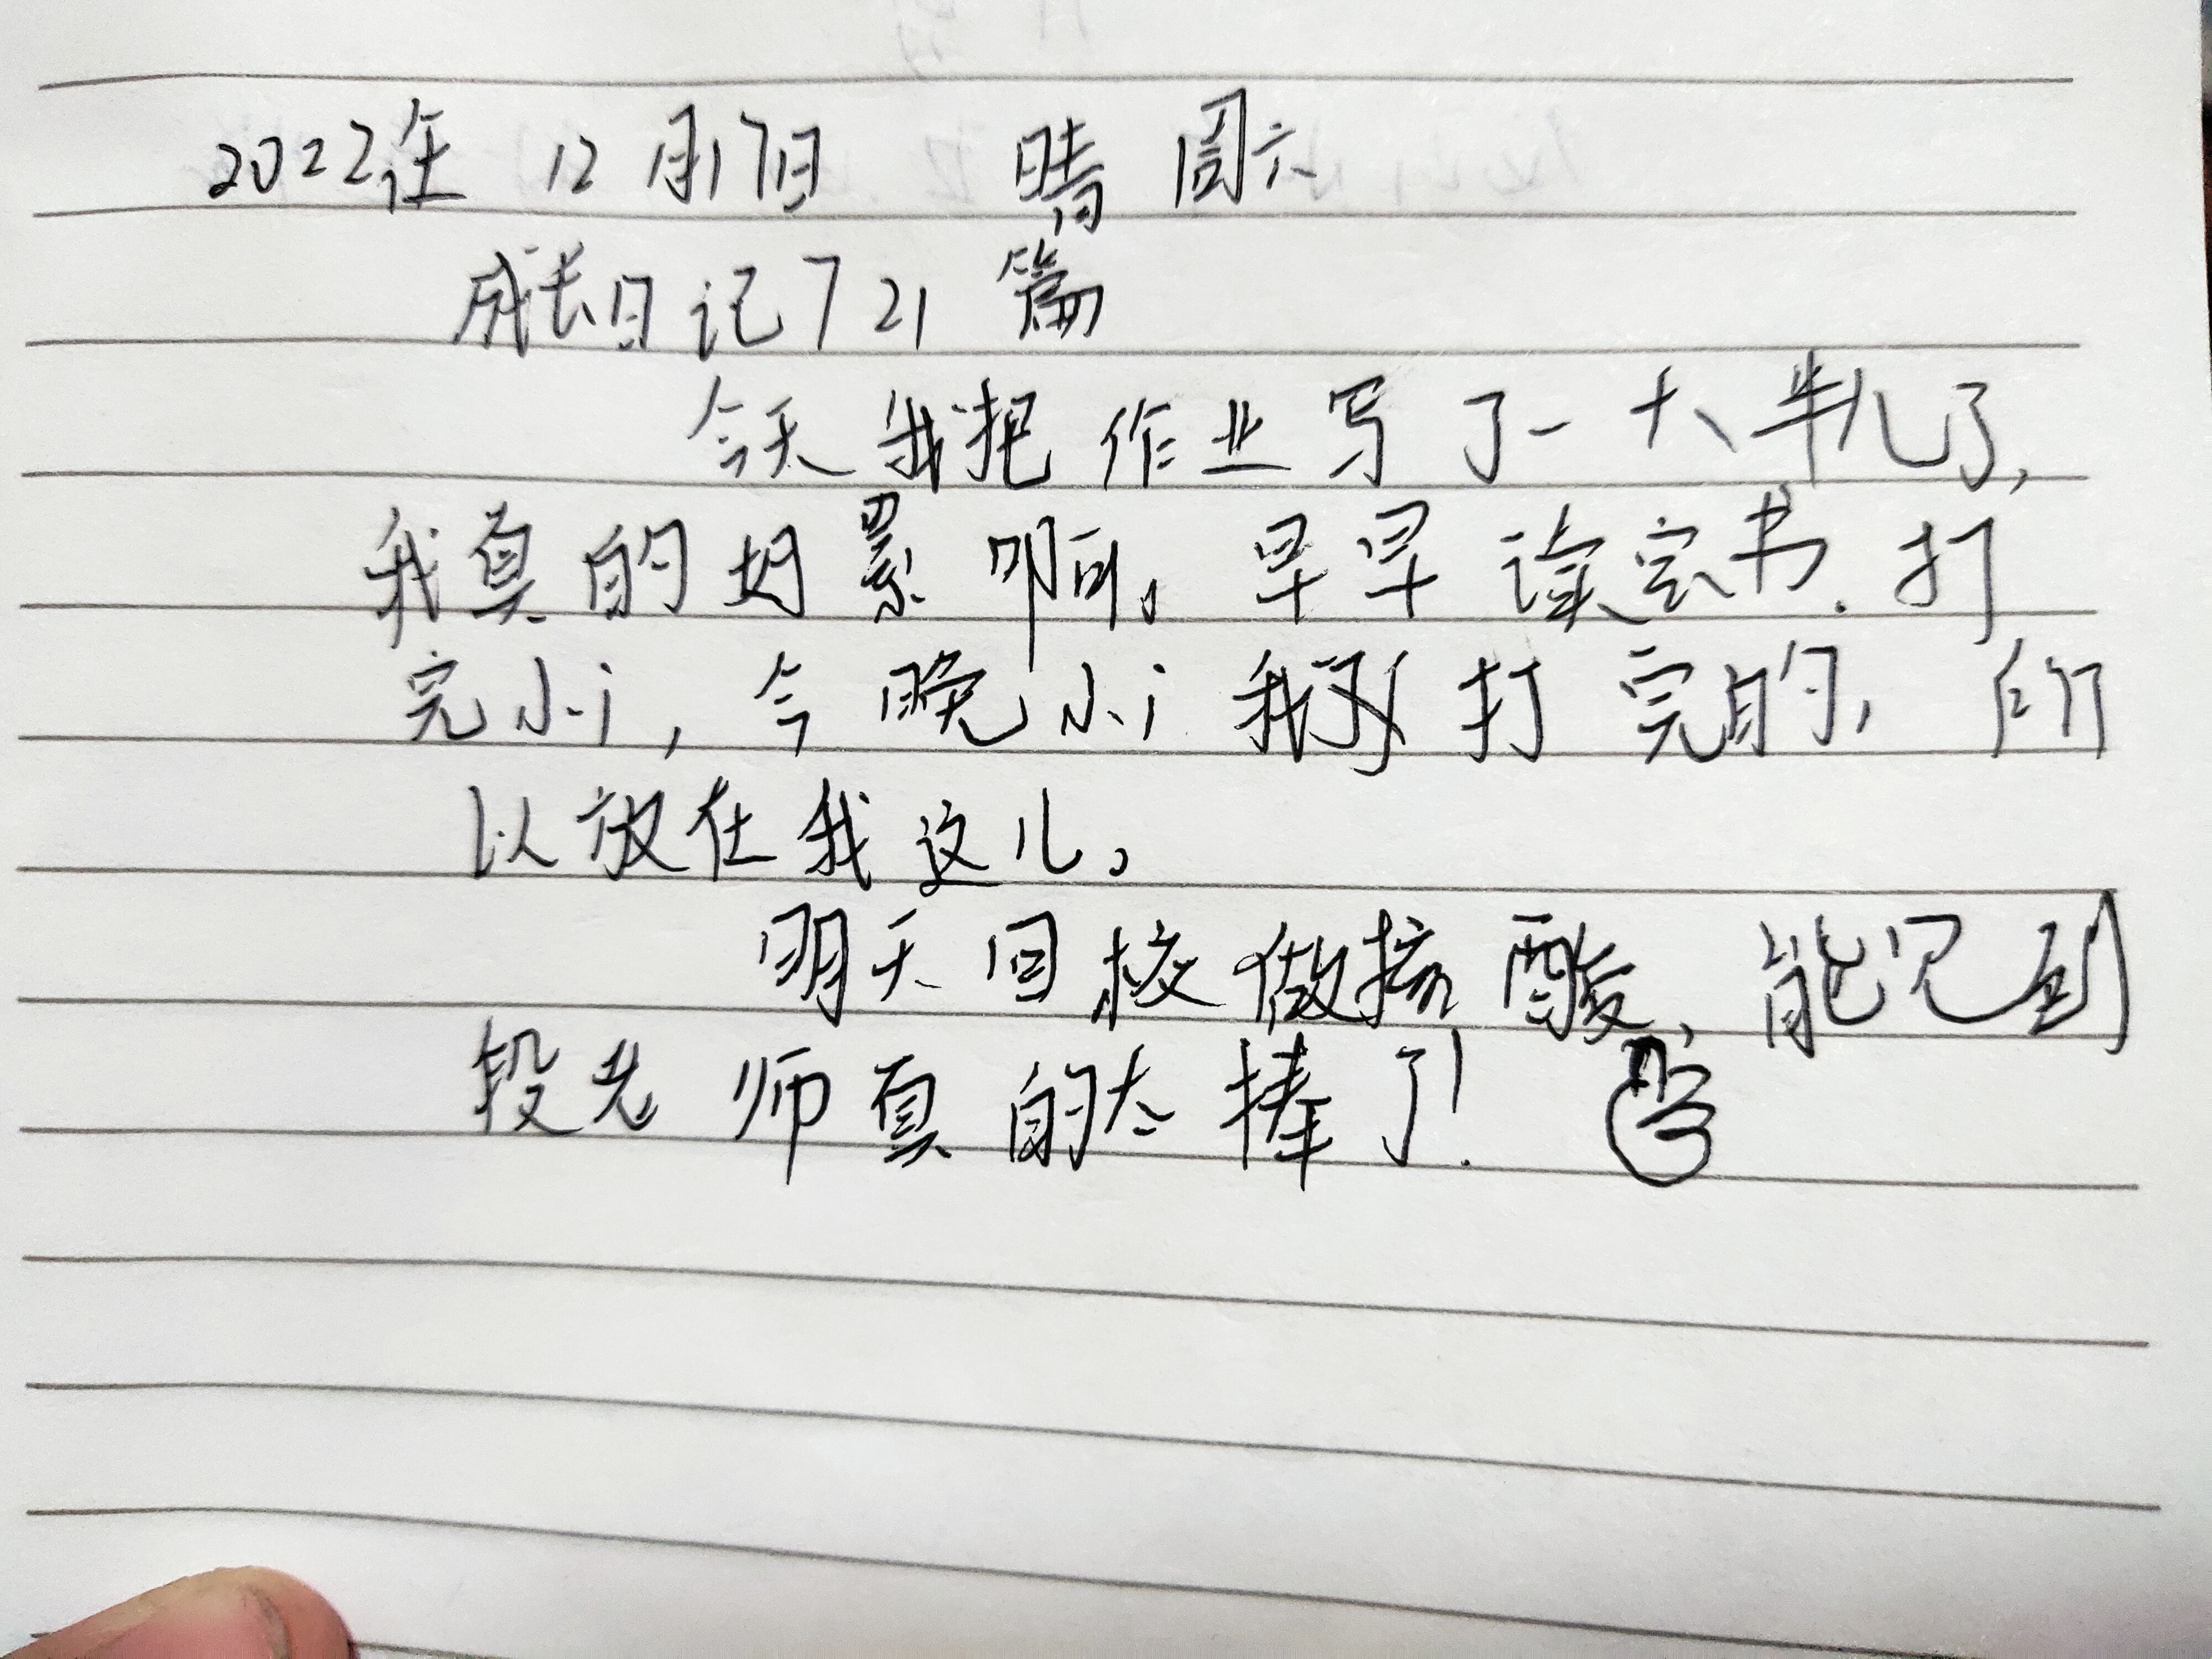 2022年 12月17日 晴 周六
成长日记721篇
今天我把作业写了一大半儿了,
我真的好累啊。早早读完书.打
完小i,今晚小i我打完的,所
以放在我这儿。
明天回校做核酸,能见到
段老师真的太棒了!